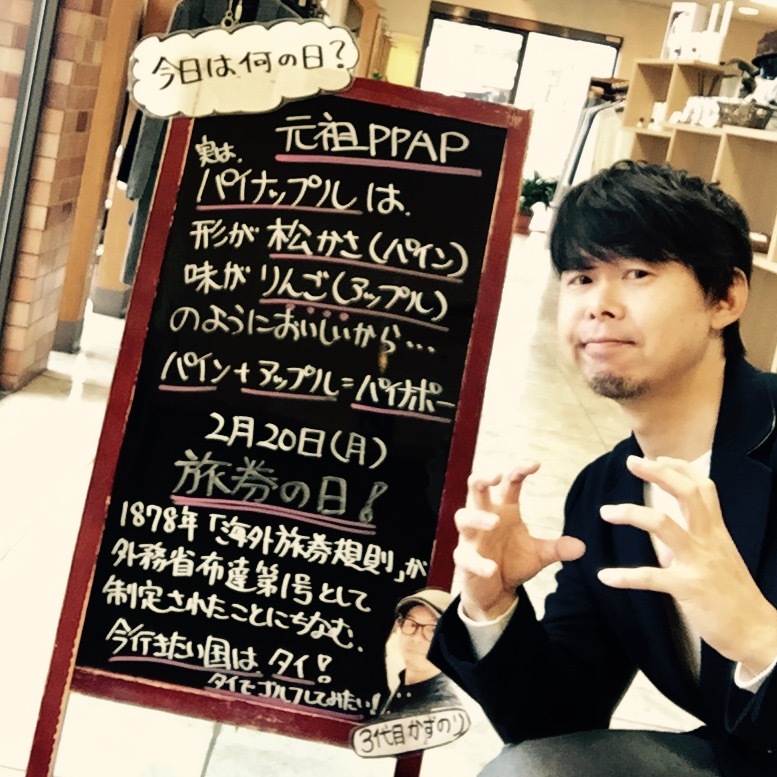 今日は何の日?
元祖PPAP
実は、
パイナップルは、
形が松かさ(パイン)
味がりんご(アップル)
のようにおいしいから…
パイン+アップル=パイナポー
2月20日(月)
旅券の日!
1878年「海外旅券規則」が
外務省布達第1号として
制定されたことにちなむ、
今行きたい国はタイ!
タイでゴルフしてみたい!…
3代目かずのり